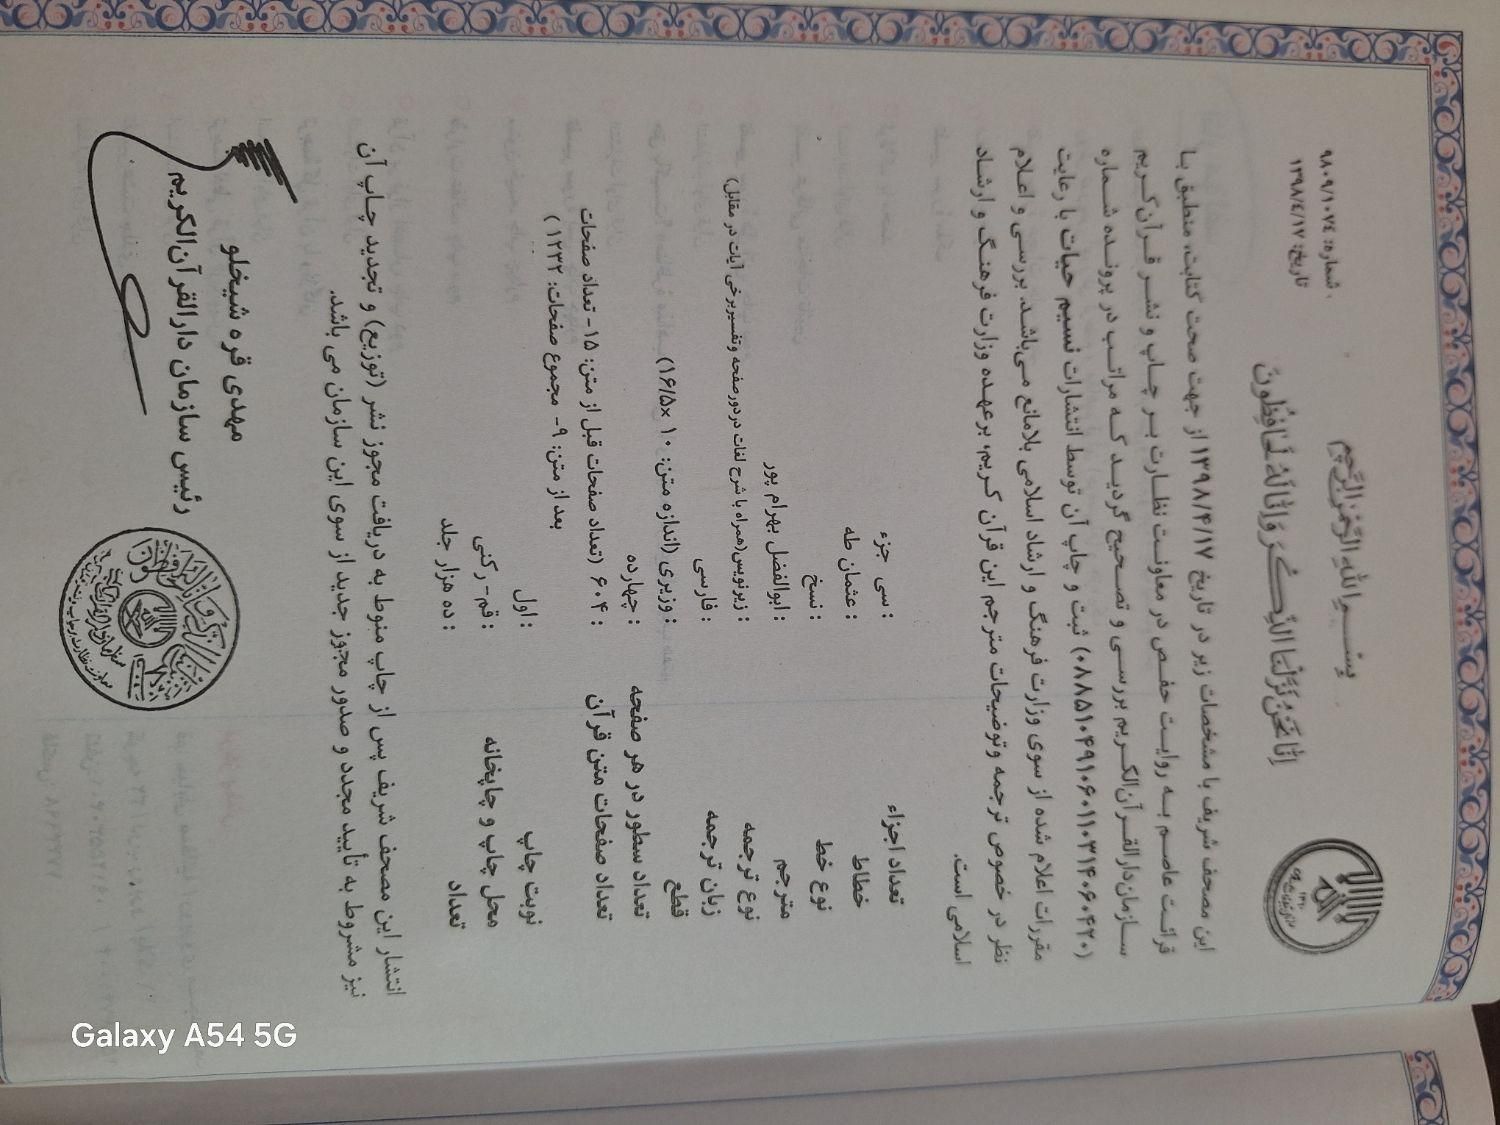 بِسْمِ اللهِ الرَّحْمٰنِ الرَّحِیمِ
اِنّا نَحْنُ نَزَّلْنَا الذِّکْرَ وَ اِنّا لَهُ لَحافِظُونَ
شماره: ۹۸۰۹/۱۰۷٤
تاریخ: ۱۳۹۸/٤/۱۷
این مصحف شریف با مشخصات زیر در تاریخ ۱۳۹۸/۴/۱۷ از جهت صحت کتابت، منطبق با
قرائت عاصم به روایت حفص در معاونت نظارت بر چاپ و نشر قرآن‌کریم
سازمان‌دارالقرآن‌الکریم بررسی و تصحیح گردید که مراتب در پرونده شماره
(۰۸۸۵۱۰۴۹۱۰۶۰۱۱۰۳۱۴۰۶۰۴۲۰) ثبت و چاپ آن توسط انتشارات نسیم حیات با رعایت
مقررات اعلام شده از سوی وزارت فرهنگ و ارشاد اسلامی بلامانع می‌باشد. بررسی و اعلام
نظر در خصوص ترجمه وتوضیحات مترجم این قرآن کریم، برعهده وزارت فرهنگ و ارشاد
اسلامی است.
تعداد اجزاء : سی جزء
خطاط : عثمان طه
نوع خط : نسخ
مترجم : ابوالفضل بهرام پور
نوع ترجمه : زیرنویس(همراه با شرح لغات دردورصفحه وتفسیربرخی آیات در مقابل)
زبان ترجمه : فارسی
قطع : وزیری (اندازه متن: ۱۰ ×۱۶/۵)
تعداد سطور در هر صفحه : چهارده
تعداد صفحات متن قرآن : ۶۰۴ (تعداد صفحات قبل از متن: ۱۵- تعداد صفحات
بعد از متن: ۹- مجموع صفحات: ۱۲۳۲ )
نوبت چاپ : اول
محل چاپ و چاپخانه : قم- رکنی
تعداد : ده هزار جلد
انتشار این مصحف شریف پس از چاپ منوط به دریافت مجوز نشر (توزیع) و تجدید چاپ آن
نیز مشروط به تأیید مجدد و صدور مجوز جدید از سوی این سازمان می باشد.
مهدی قره شیخلو
رئیس سازمان دارالقرآن‌الکریم
Galaxy A54 5G